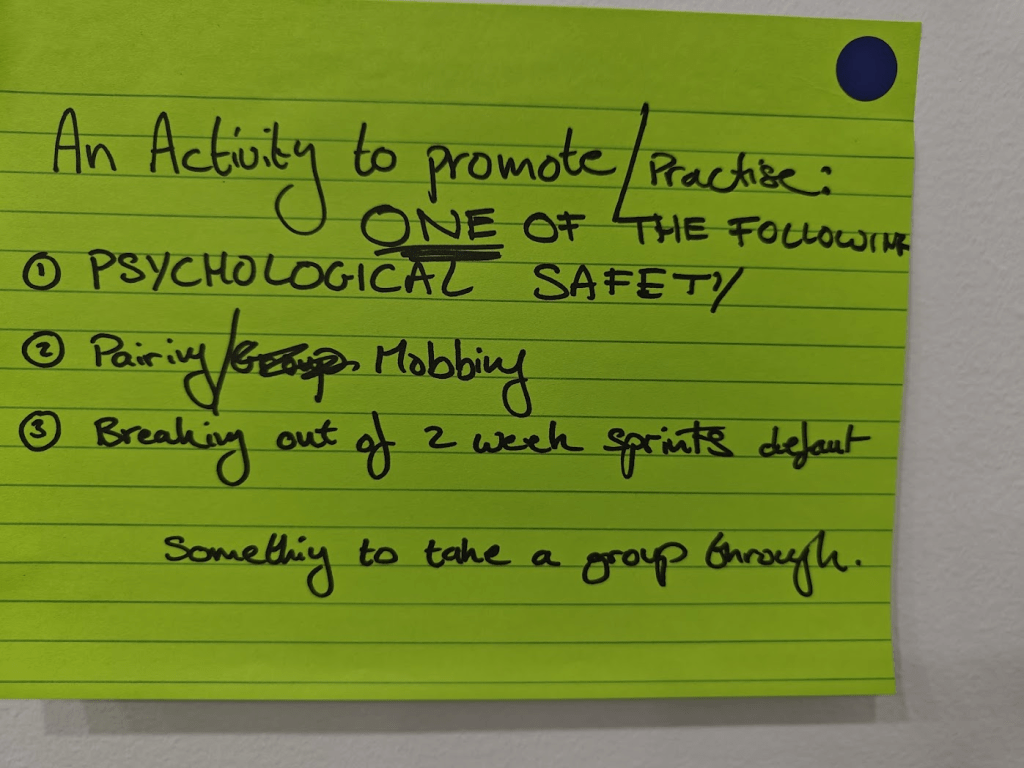 An Activity to promote / Practise:
ONE OF THE FOLLOWING
① PSYCHOLOGICAL SAFETY
② Pairing / Mobbing
③ Breaking out of 2 week sprints defaut
Something to take a group through.